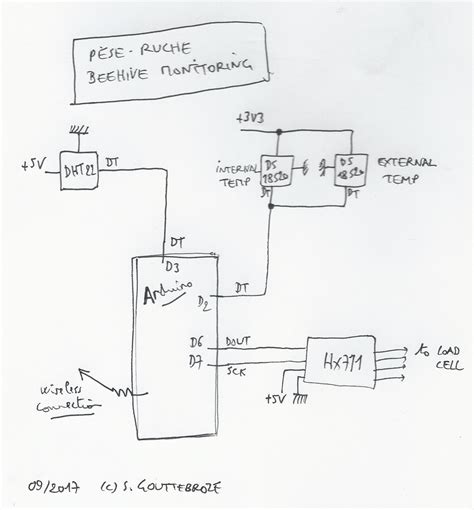 PÈSE-RUCHE
BEEHIVE MONITORING
+3V3
+5V
DHT22
DT
INTERNAL
TEMP
DS
18S20
DT
DS
18S20
DT
EXTERNAL
TEMP
DT
D3
Arduino
D2
DT
D6
DOUT
D7
SCK
HX711
to LOAD
CELL
+5V
wireless
connection
09/2017 (c) S. GOUTTEBROZE